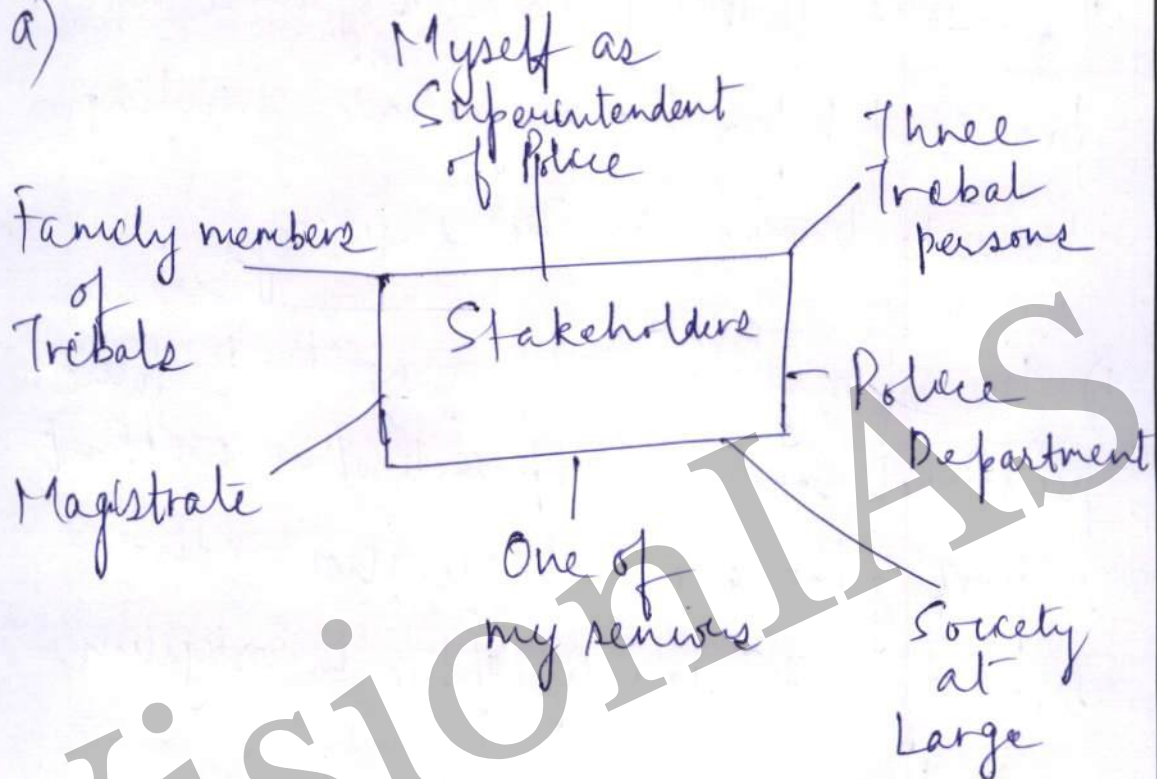 a)
Myself as
Superintendent
of Police
Three
Tribal
persons
Family members
of
Tribals
Stakeholders
Police
Department
Magistrate
One of
my seniors
Society
at
Large
VisionIAS